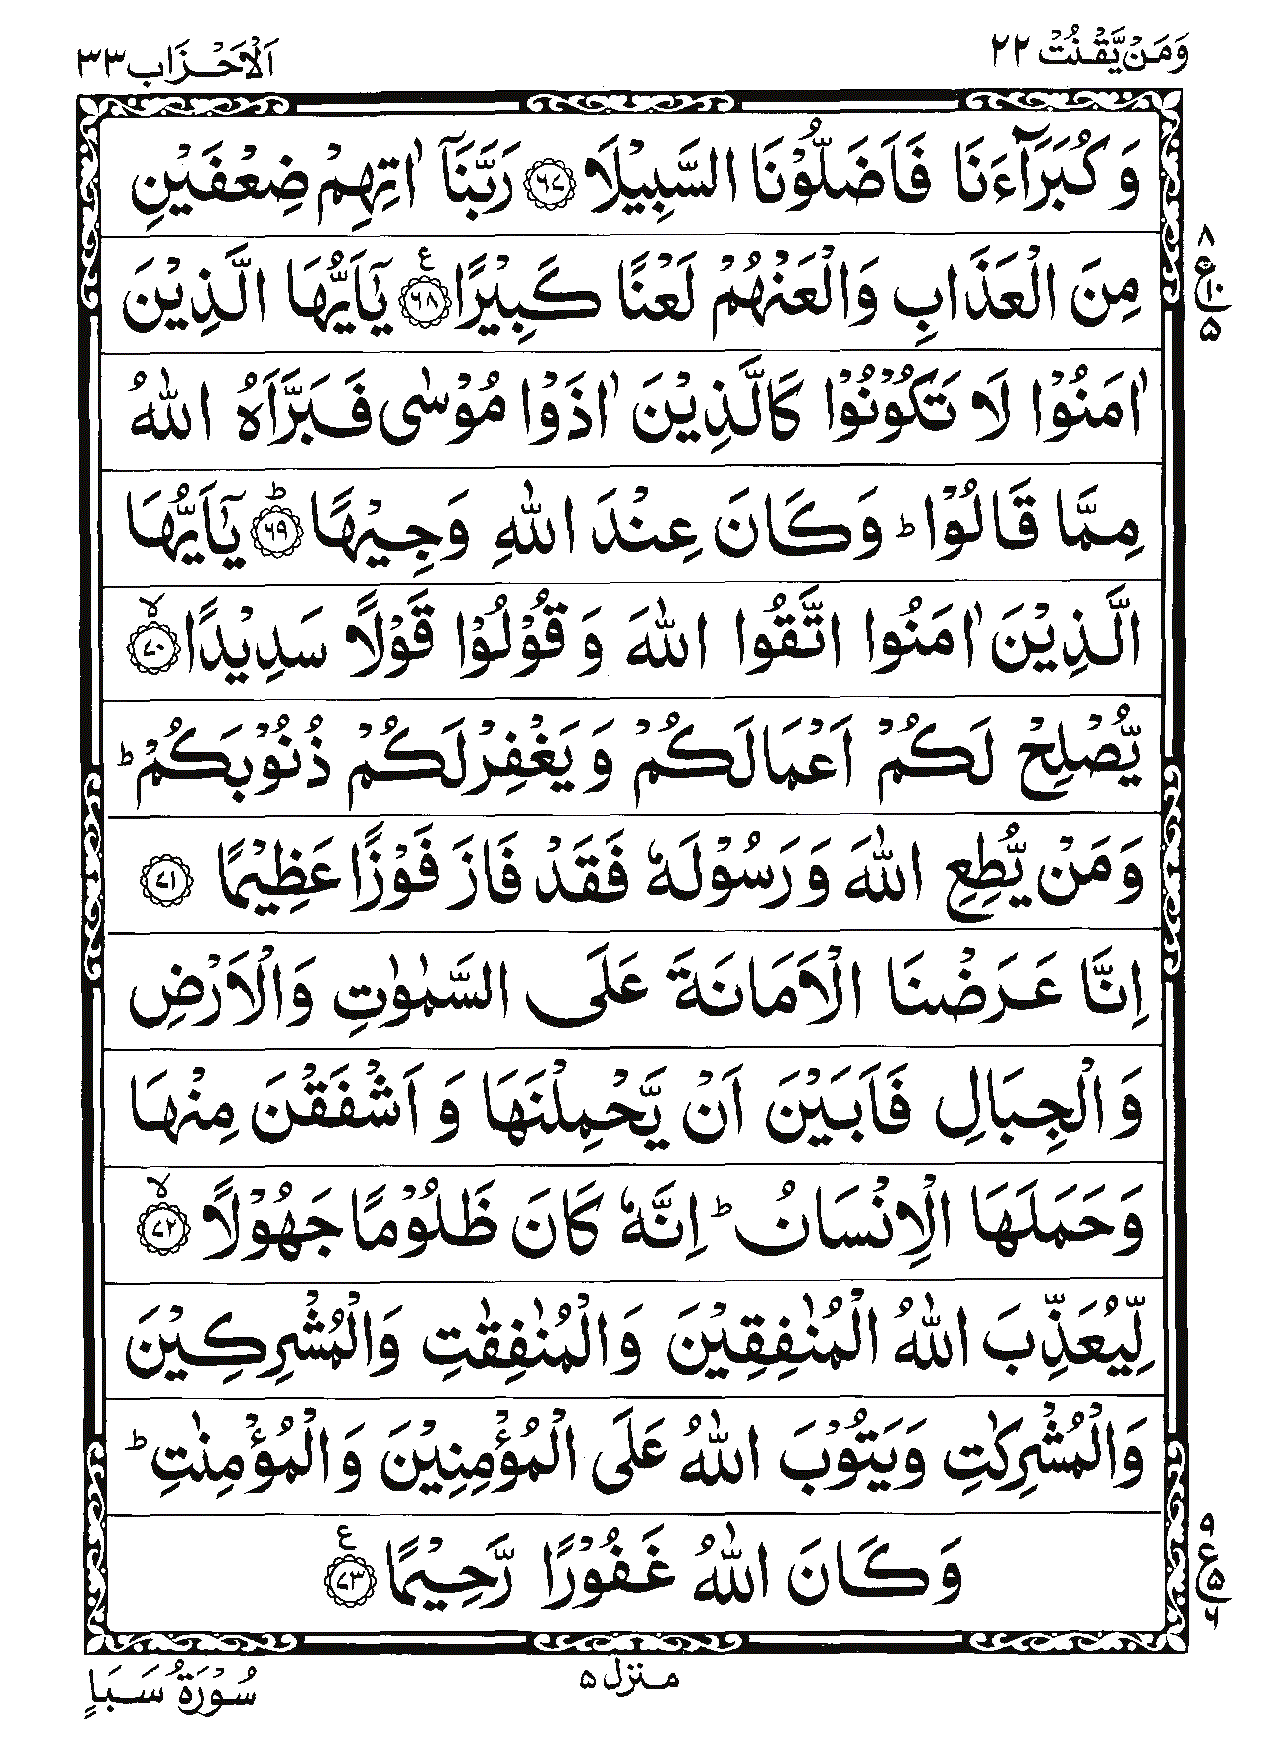 وَمَنْ يَّقْنُتْ ٢٢
اَلْاَحْزَاب ٣٣
وَ كُبَرَآءَنَا فَاَضَلُّوْنَا السَّبِيْلَا ﴿٦٧﴾ رَبَّنَاۤ اٰتِهِمْ ضِعْفَيْنِ
مِنَ الْعَذَابِ وَالْعَنْهُمْ لَعْنًا كَبِيْرًا ﴿٦٨﴾ ع يٰۤاَيُّهَا الَّذِيْنَ
٨
ع ١٠
٥
اٰمَنُوْا لَا تَكُوْنُوْا كَالَّذِيْنَ اٰذَوْا مُوْسٰى فَبَرَّاَهُ اللّٰهُ
مِمَّا قَالُوْا ؕ وَكَانَ عِنْدَ اللّٰهِ وَجِيْهًا ﴿٦٩﴾ ؕ يٰۤاَيُّهَا
الَّذِيْنَ اٰمَنُوا اتَّقُوا اللّٰهَ وَ قُوْلُوْا قَوْلًا سَدِيْدًا ﴿٧٠﴾ ۙ
يُّصْلِحْ لَكُمْ اَعْمَالَكُمْ وَ يَغْفِرْ لَكُمْ ذُنُوْبَكُمْ ؕ
وَمَنْ يُّطِعِ اللّٰهَ وَ رَسُوْلَهٗ فَقَدْ فَازَ فَوْزًا عَظِيْمًا ﴿٧١﴾
اِنَّا عَرَضْنَا الْاَمَانَةَ عَلَى السَّمٰوٰتِ وَالْاَرْضِ
وَ الْجِبَالِ فَاَبَيْنَ اَنْ يَّحْمِلْنَهَا وَ اَشْفَقْنَ مِنْهَا
وَحَمَلَهَا الْاِنْسَانُ ؕ اِنَّهٗ كَانَ ظَلُوْمًا جَهُوْلًا ﴿٧٢﴾ ۙ
لِّيُعَذِّبَ اللّٰهُ الْمُنٰفِقِيْنَ وَالْمُنٰفِقٰتِ وَالْمُشْرِكِيْنَ
وَالْمُشْرِكٰتِ وَيَتُوْبَ اللّٰهُ عَلَى الْمُؤْمِنِيْنَ وَالْمُؤْمِنٰتِ ؕ
وَكَانَ اللّٰهُ غَفُوْرًا رَّحِيْمًا ﴿٧٣﴾ ع
٩
ع ٥
٦
منزل ٥
سُوْرَةُ سَبَاٍ